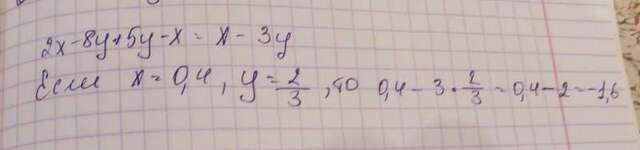 2x-8y+5y-x = x-3y
Если x=0,4, y=2/3, то 0,4-3·2/3=0,4-2=-1,6